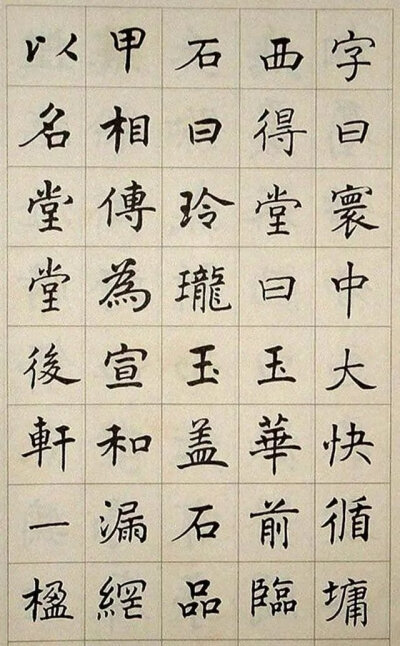 字曰寰中大快循墉
西得堂曰玉華前臨
石曰玲瓏玉盖石品
甲相傳為宣和漏網
以名堂堂後軒一楹